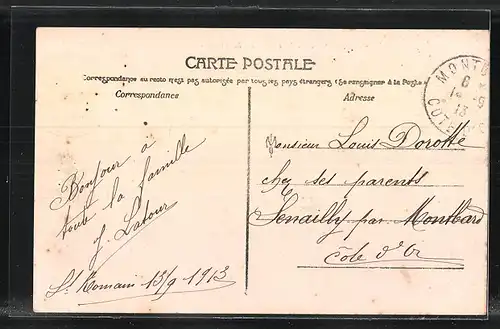 CARTE POSTALE
Correspondance au recto n'est pas autorisée par tous les pays étrangers (Se renseigner à la Poste)
Correspondance
Adresse
Bonjour a
toute la famille
J. Latour
St Romain 13/9 1913
Monsieur Louis Dorotte
chez ses parents
Senailly par Montbard
Côte d'Or
MONTB
COTE